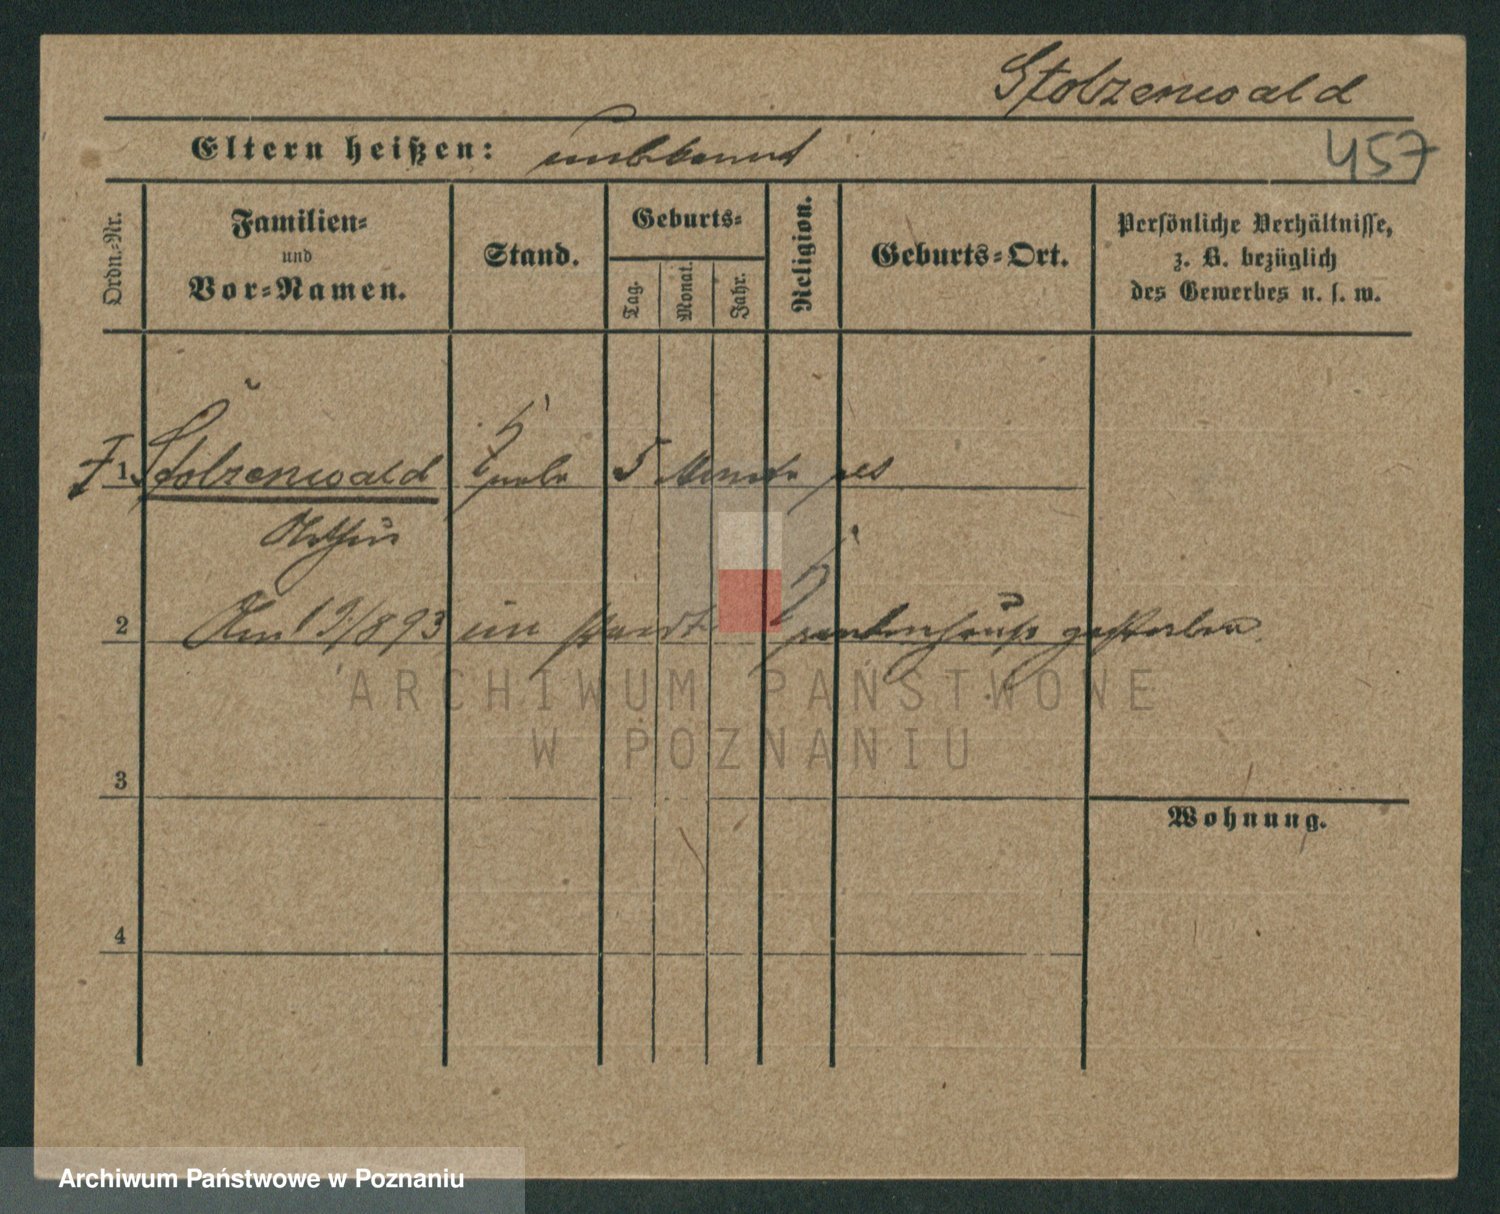 Stolzenwald
Eltern heißen: unbekannt
457
Ordn.-Nr.
Familien-
und
Vor-Namen.
Stand.
Geburts-
Tag.
Monat.
Jahr.
Religion.
Geburts-Ort.
Persönliche Verhältnisse,
z. B. bezüglich
des Gewerbes u. s. w.
1 Stolzenwald 5 Monate
Arthur
2 im Stadt Krankenhause gestorben
ARCHIWUM PAŃSTWOWE
W POZNANIU
3
Wohnung.
4
Archiwum Państwowe w Poznaniu